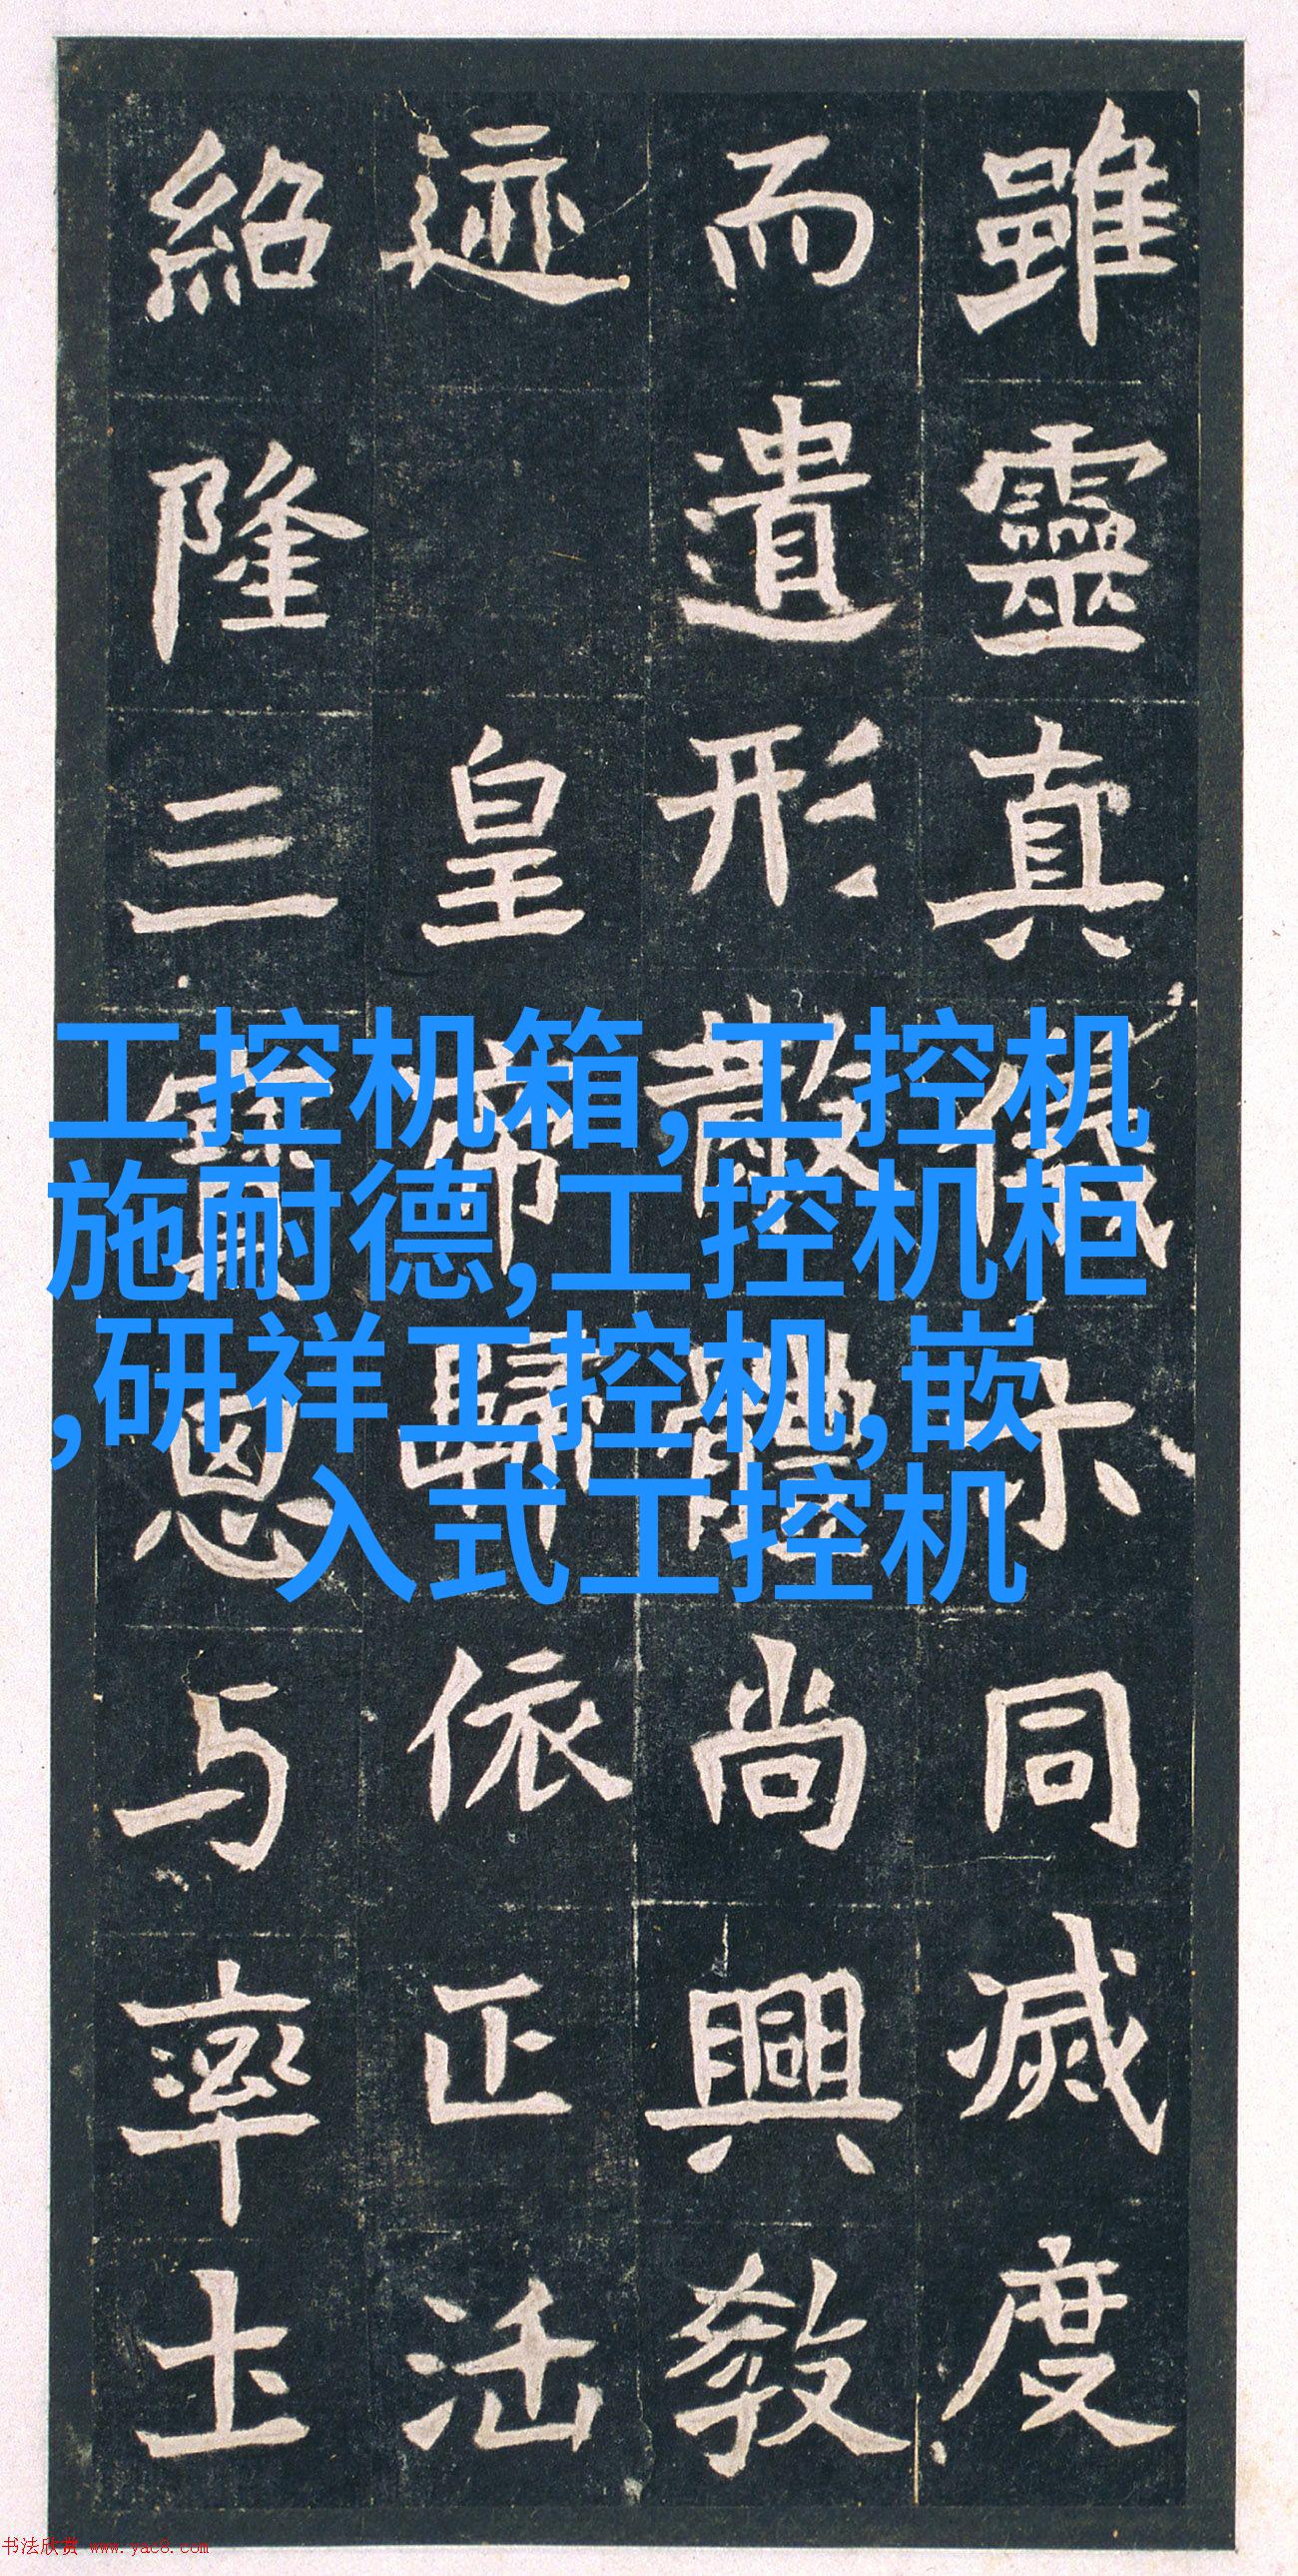 雖靈真儀示同滅度
而遺形散體尚興教
迹 皇帝歸依正法
紹隆三寶恩与率土
工控机箱,工控机
施耐德,工控机柜
,研祥工控机,嵌
入式工控机
书法欣赏 www.yac8.com